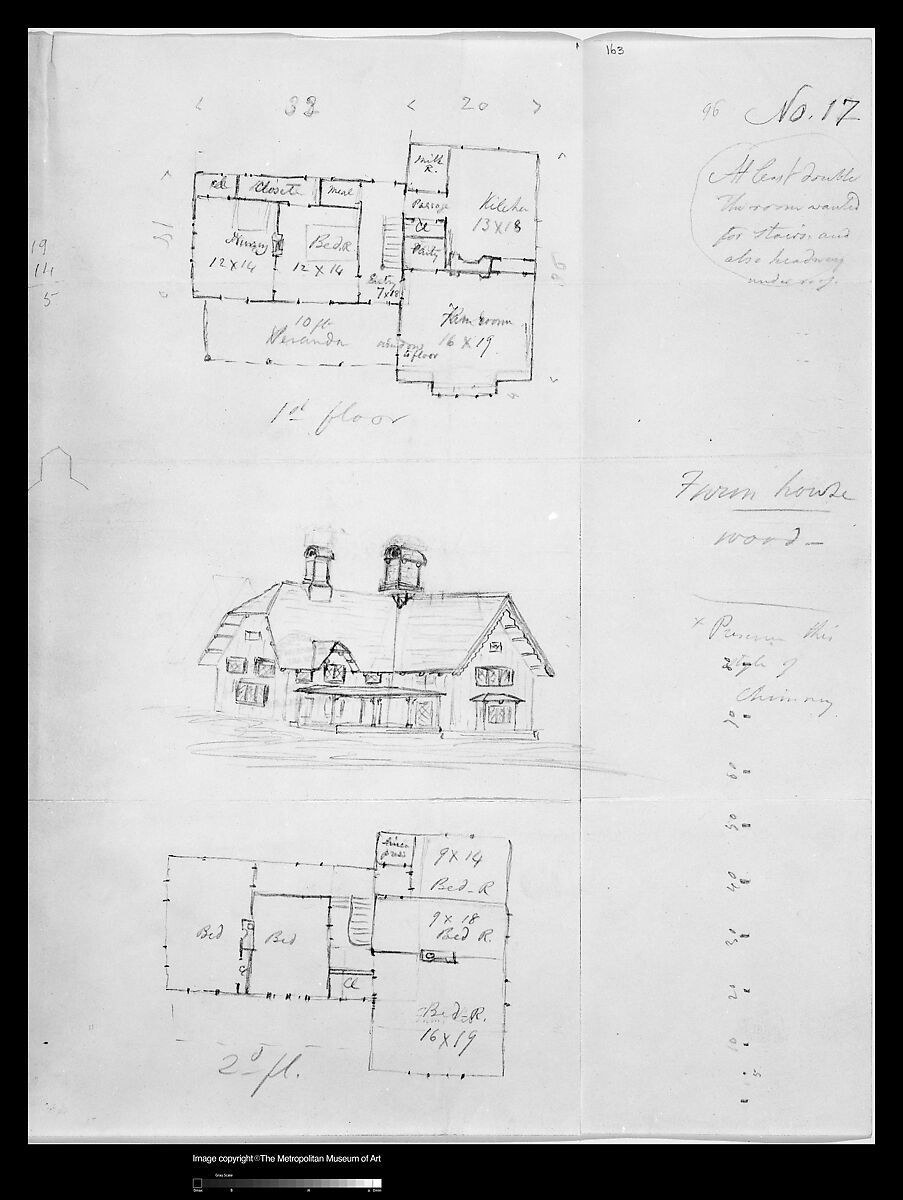 163
33
20
96 No. 17
At least double
the room wanted
for stairs and
also headway
under roof.
Milk
R.
Cl
Closets
Passage
Kitchen
13 X 18
Cl
Nursery
12 X 14
Bed R.
12 X 14
Pantry
Entry
Farm room
16 X 19
10 ft
Veranda
windows
to floor
1st floor
19
14
5
Farm house
wood —
x Preserve this
style of
Chimney
80
70
60
50
40
30
20
10
5
9 X 14
Bed-R
9 X 18
Bed R.
Bed
Bed
Cl
Bed-R.
16 X 19
2d fl.
Image copyright©The Metropolitan Museum of Art
Gray Scale